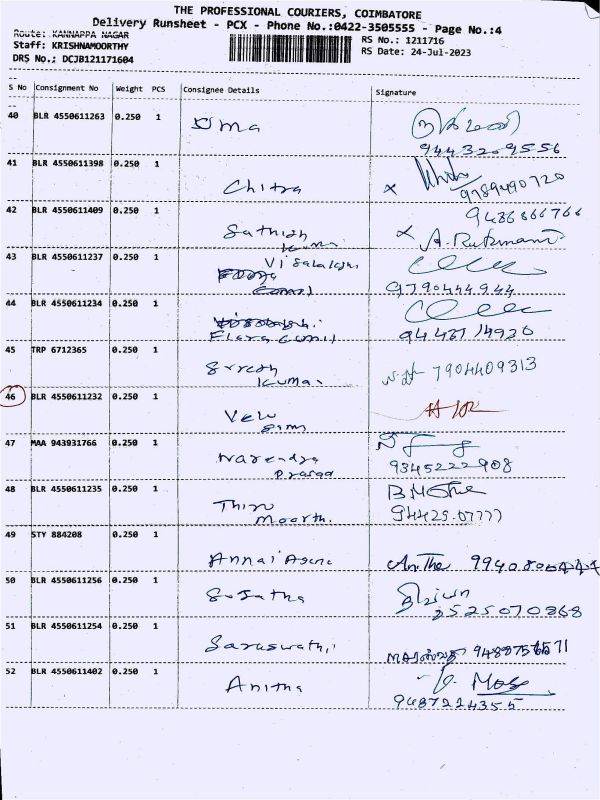 THE PROFESSIONAL COURIERS, COIMBATORE
Delivery Runsheet - PCX - Phone No.:0422-3505555 - Page No.:4
Route: KANNAPPA NAGAR
RS No.: 1211716
Staff: KRISHNAMOORTHY
RS Date: 24-Jul-2023
DRS No.: DCJB121171604
S No Consignment No Weight PCS Consignee Details Signature
40 BLR 4550611263 0.250 1 Uma
9443209556
41 BLR 4550611398 0.250 1 Chitra x
9789490720
42 BLR 4550611409 0.250 1 Sathish x
Kumar A. Rukmani
43 BLR 4550611237 0.250 1 Visalakshi
9790444944
44 BLR 4550611234 0.250 1
Flora Cunil
45 TRP 6712365 0.250 1 Suresh 7904409313
Kumar
46 BLR 4550611232 0.250 1 Velu
Sam
47 MAA 943931766 0.250 1 Narendra
Prasad 9345222908
48 BLR 4550611235 0.250 1 Thiru
Moorth. 94425-07777
49 STY 884208 0.250 1 Annai
50 BLR 4550611256 0.250 1 Sujatha
2525070868
51 BLR 4550611254 0.250 1 Saraswathi
52 BLR 4550611402 0.250 1 Anitha
9487224355